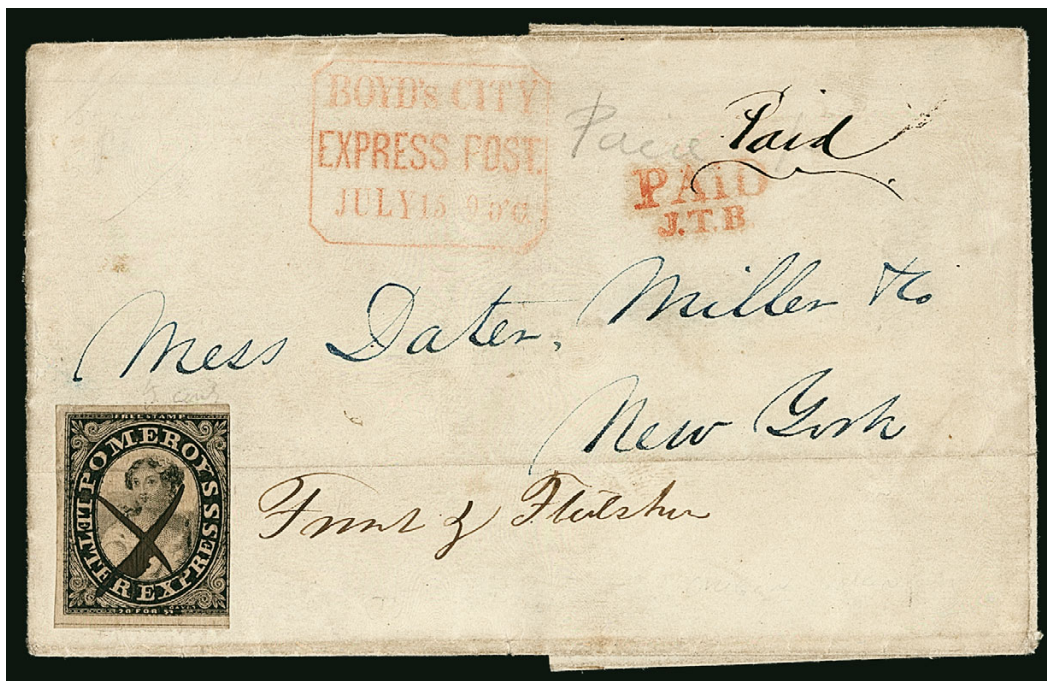 BOYD's CITY
EXPRESS POST.
JULY 15 9
Paid
Paid
PAiD
J.T.B
Mess Dater, Miller & Co
New York
5 cents
FREE STAMP
POMEROY'S LETTER EXPRESS
20 FOR $1